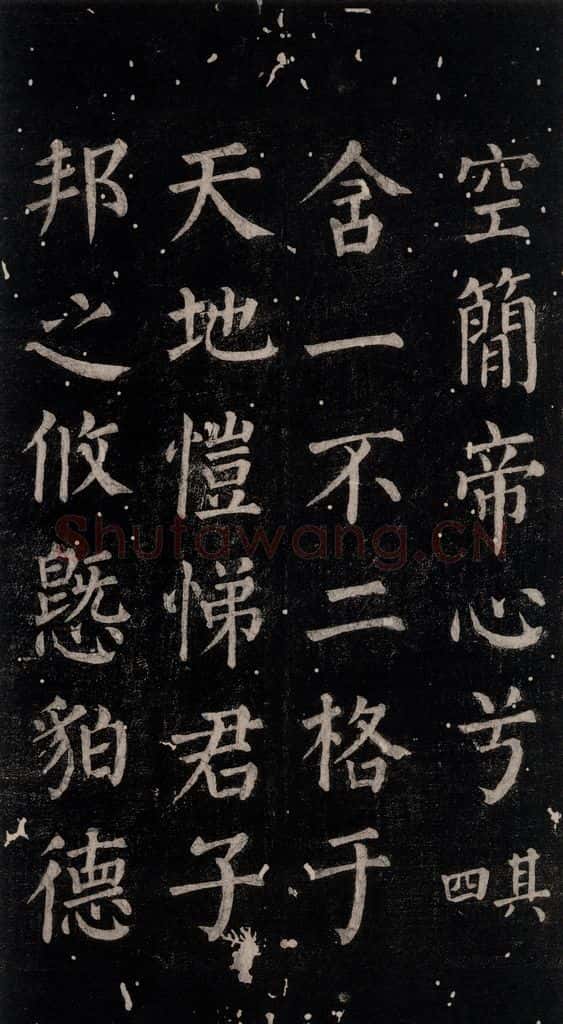 空簡帝心兮其四
舍一不二格于
天地愷悌君子
邦之攸貃德
Shufawang.CN